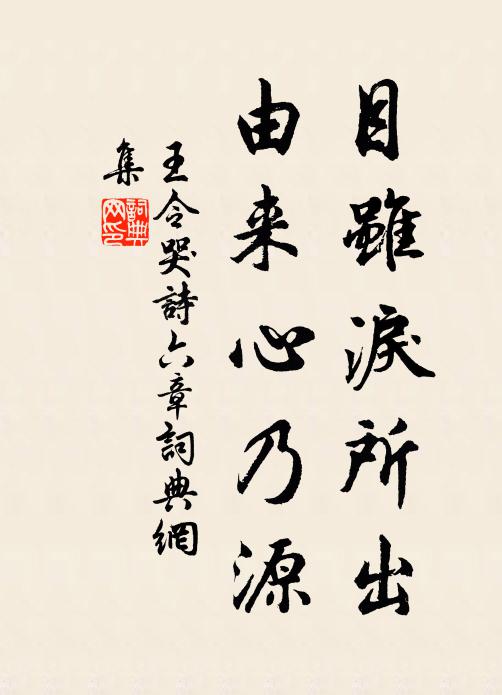 目雖淚所出
由来心乃源
王令哭詩六章詞典網
集
詞典
网印